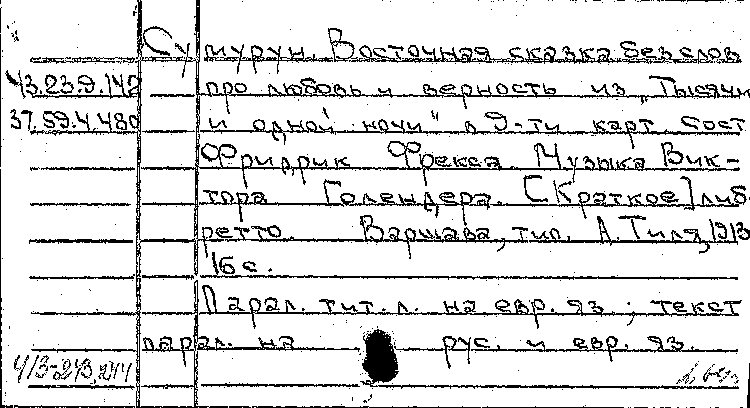 Сумурун. Восточная сказка без слов
43.23.9.142 про любовь и верность из „Тысячи
37.59.4.480 и одной ночи" в 9-ти карт. Сост.
Фридрик Фрекса. Музыка Вик-
тора Голендера. [Краткое] либ-
ретто. Варшава, тип. А. Тиля, 1913
16 с.
Парал. тит. л. на евр. яз.; текст
парал. на рус. и евр. яз.
413-243,244